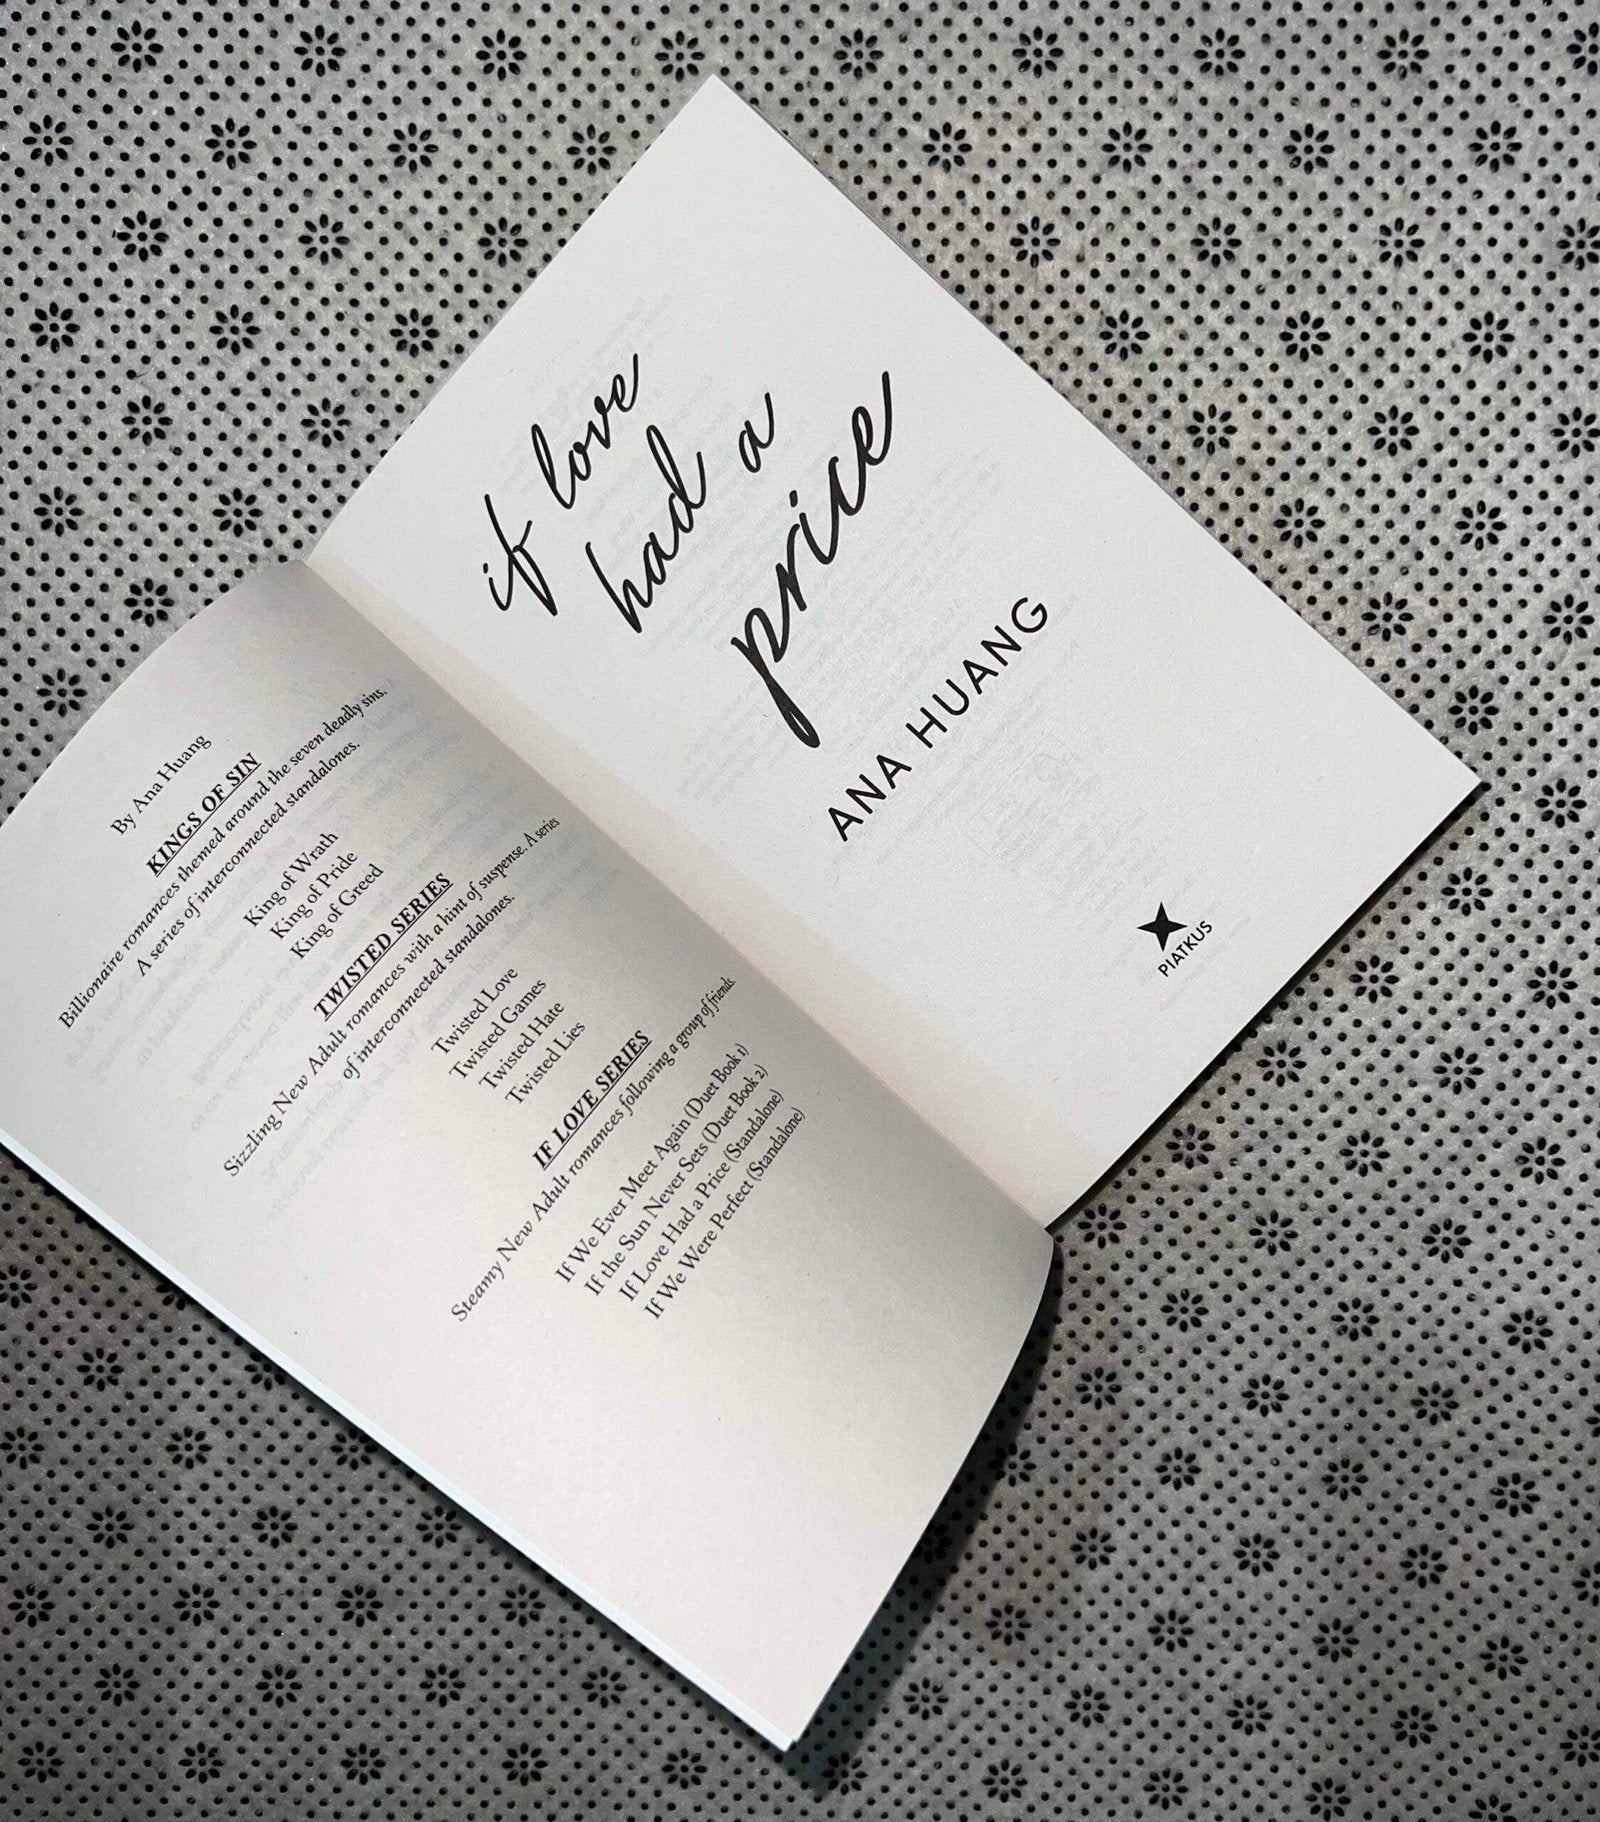 By Ana Huang
KINGS OF SIN
Billionaire romances themed around the seven deadly sins.
A series of interconnected standalones.
King of Wrath
King of Pride
King of Greed
TWISTED SERIES
Sizzling New Adult romances with a hint of suspense. A series
of interconnected standalones.
Twisted Love
Twisted Games
Twisted Hate
Twisted Lies
IF LOVE SERIES
Steamy New Adult romances following a group of friends.
If We Ever Meet Again (Duet Book 1)
If the Sun Never Sets (Duet Book 2)
If Love Had a Price (Standalone)
If We Were Perfect (Standalone)
if love
had a
price
ANA HUANG
PIATKUS